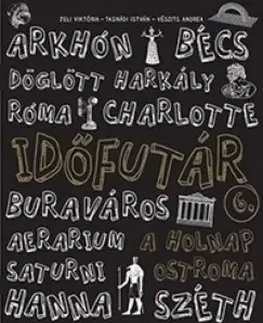 JELI VIKTÓRIA - TASNÁDI ISTVÁN - VÉSZITS ANDREA
ARKHÓN BÉCS
DÖGLÖTT HARKÁLY
RÓMA CHARLOTTE
IDŐFUTÁR
BURAVÁROS 6.
AERARIUM A HOLNAP
SATURNI OSTROMA
HANNA SZÉTH